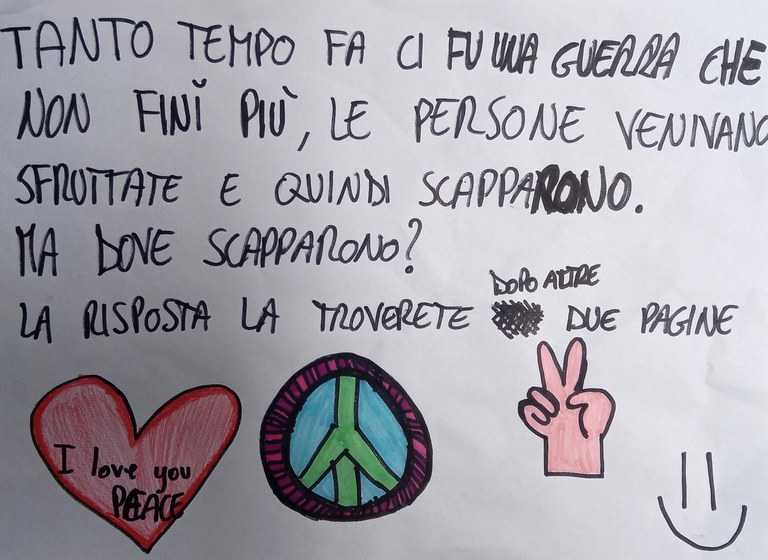 TANTO TEMPO FA CI FU UNA GUERRA CHE
NON FINÌ PIÙ, LE PERSONE VENIVANO
SFRUTTATE E QUINDI SCAPPARONO.
MA DOVE SCAPPARONO?
DOPO ALTRE
LA RISPOSTA LA TROVERETE DUE PAGINE
I love you
PEACE